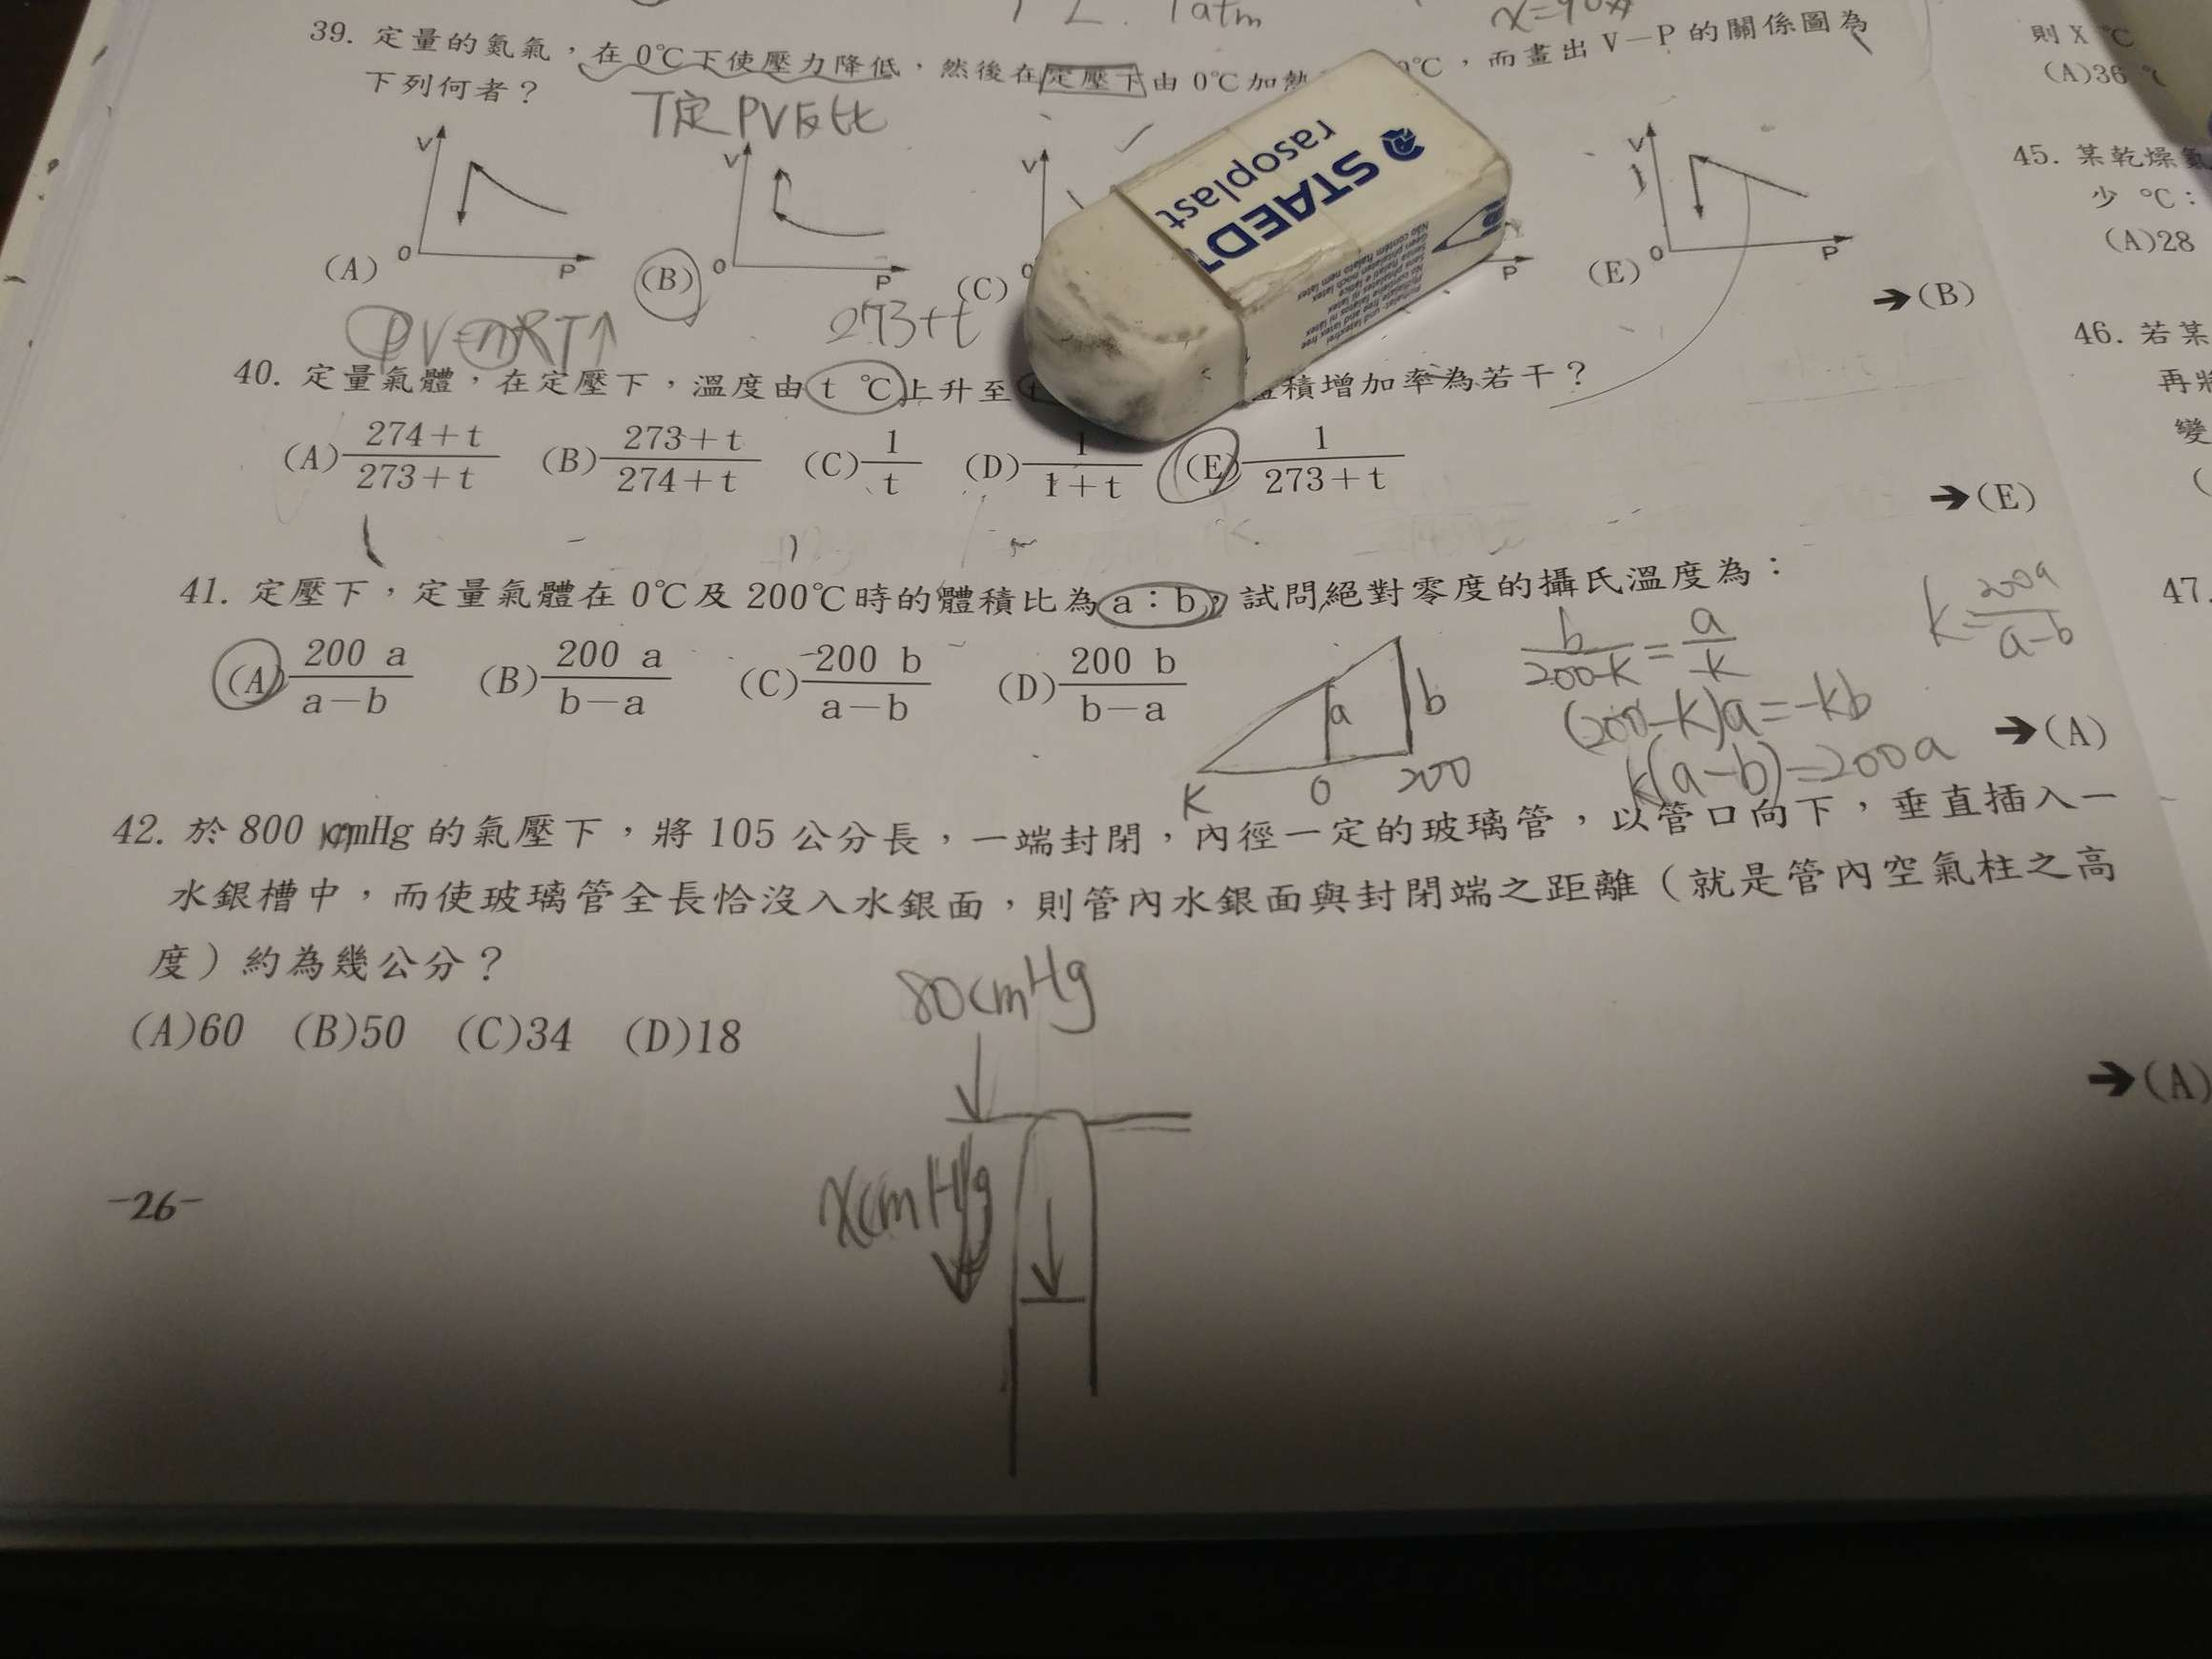 1 atm
x=90#
39. 定量的氮氣，在0℃下使壓力降低，然後在定壓下由0℃加熱 ℃，而畫出V－P的關係圖為
下列何者？
T定 PV反比
V
O
P
(A)
V
O
P
(B)
V
P
(C)
V
O
P
(E)
➔(B)
STAEDT
rasoplast
PV=nRT↑
273+t
40. 定量氣體，在定壓下，溫度由 t ℃上升至 積增加率為若干？
(A) 274+t / 273+t (B) 273+t / 274+t (C) 1 / t (D) 1 / 1+t (E) 1 / 273+t
➔(E)
41. 定壓下，定量氣體在 0℃及 200℃時的體積比為 a：b，試問絕對零度的攝氏溫度為：
(A) 200 a / a－b (B) 200 a / b－a (C) -200 b / a－b (D) 200 b / b－a
➔(A)
a
b
K
0
200
b / 200-K = a / -K
(200-K)a=-Kb
K(a-b)=200a
K=200a / a-b
42. 於 800 mmHg 的氣壓下，將 105 公分長，一端封閉，內徑一定的玻璃管，以管口向下，垂直插入一
水銀槽中，而使玻璃管全長恰沒入水銀面，則管內水銀面與封閉端之距離（就是管內空氣柱之高
度）約為幾公分？
(A)60 (B)50 (C)34 (D)18
➔(A)
80cmHg
xcmHg
-26-
則 X ℃
(A)36
45. 某乾燥氣
少 ℃：
(A)28
46. 若某
再將
變
(
47.